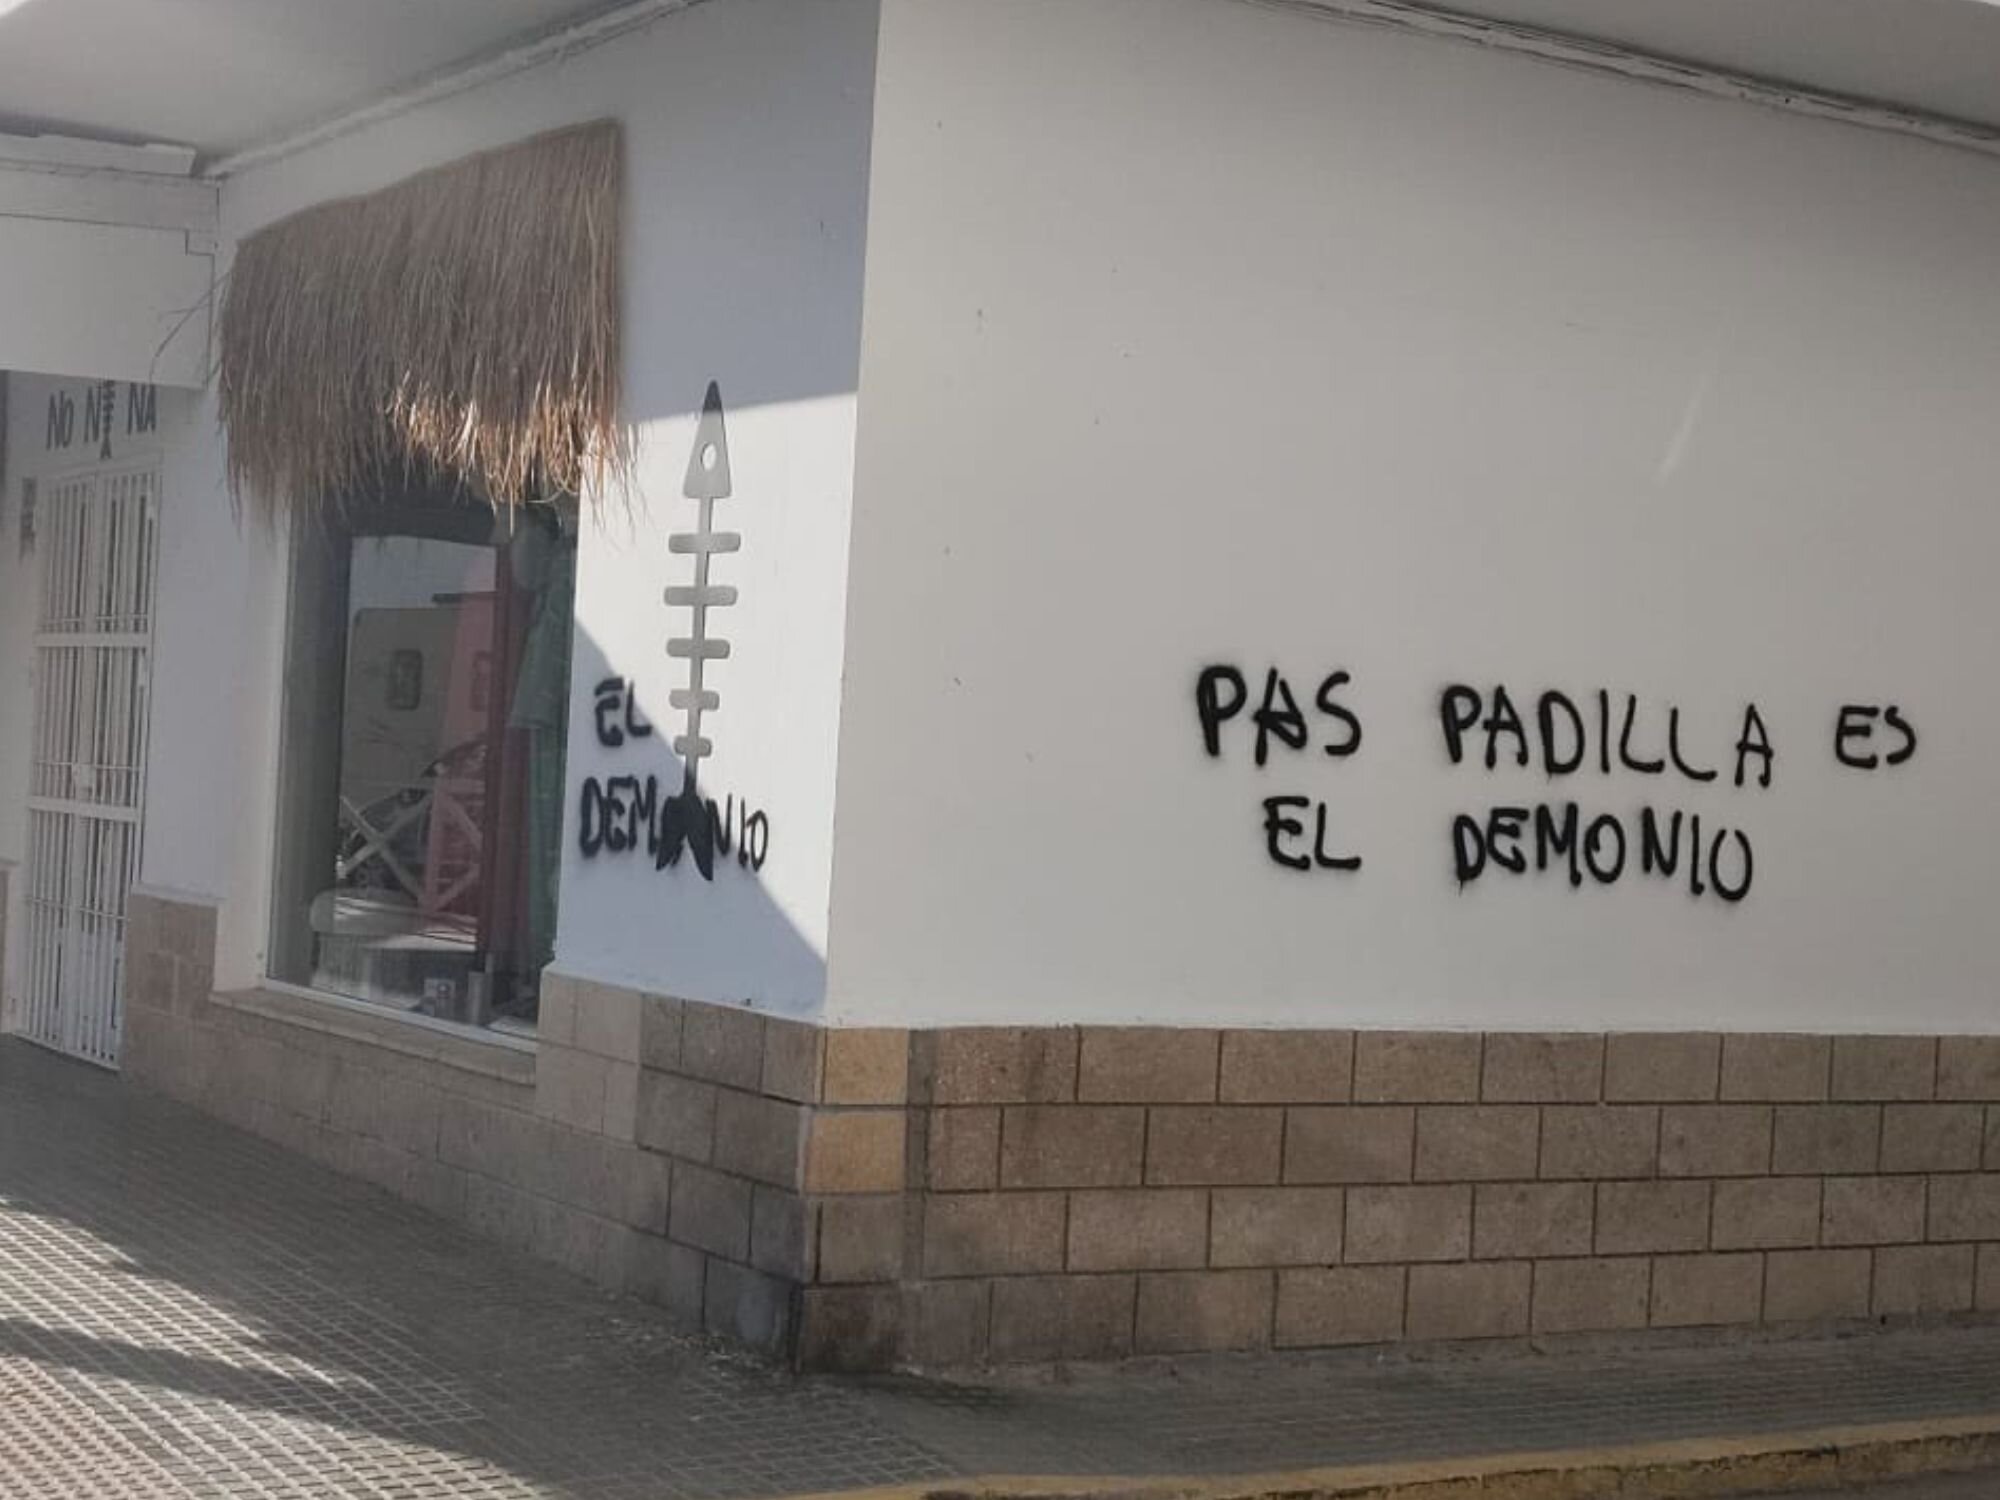 No NiNA
EL
DEMONIO
PAS PADILLA ES
EL DEMONIO